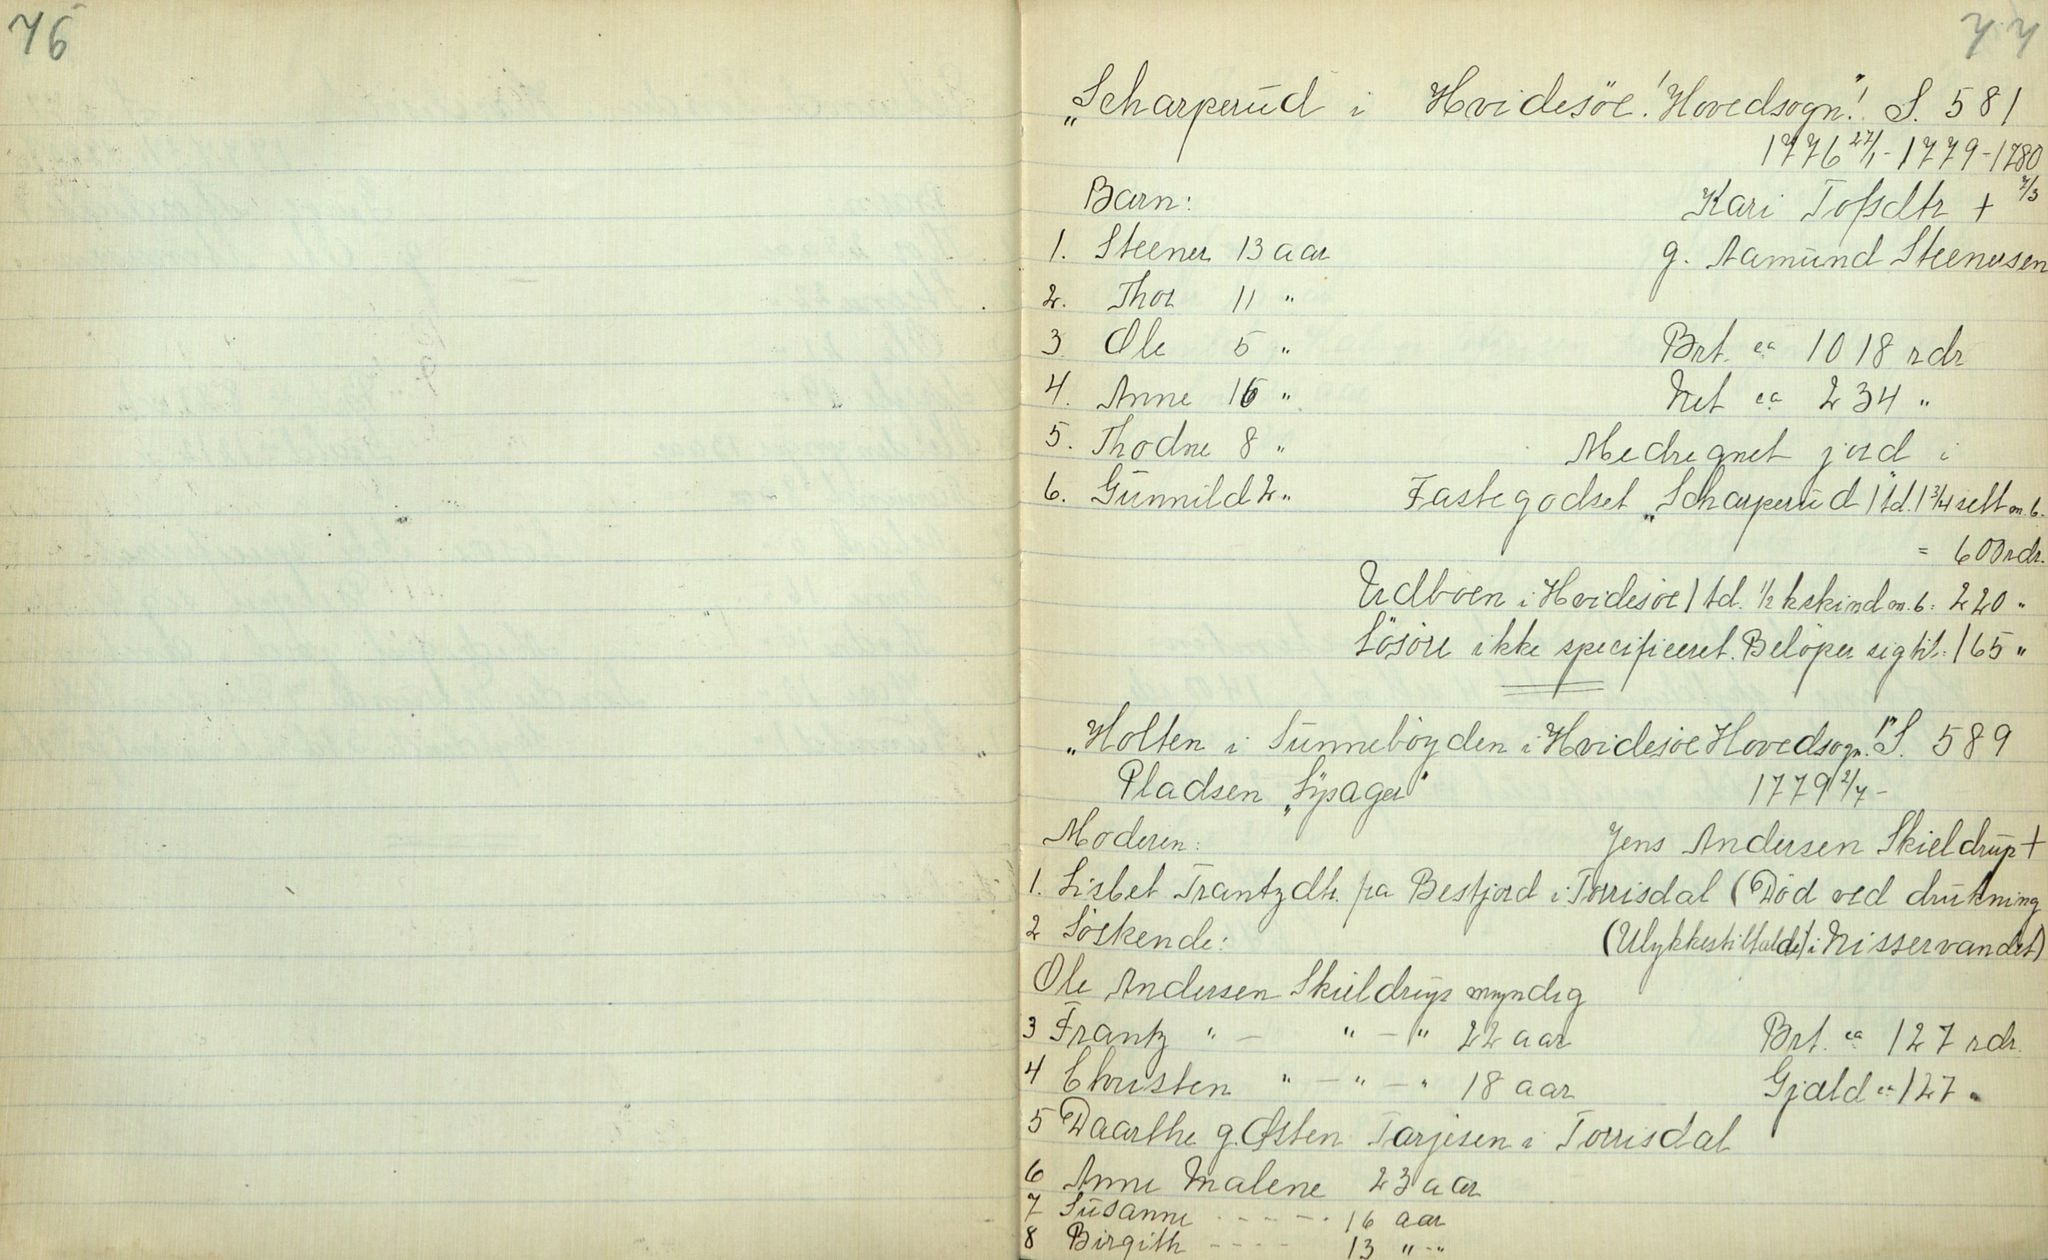 76
77
„Scharperud i Hvidesöe! Hovedsogn!" S. 581
1776 27/1 - 1779 - 1780
Barn: Kari Tofsdtr + 7/3
1. Steener 13 aar g. Aamund Steenersen
2. Thor 11 "
3 Ole 5 " Brt. ca 1018 rdr
4. Anne 16 " Net ca 234 "
5. Thodne 8 " Medregnet jord i
6. Gunnild 2 " Fastegodset „Scharperud" 1 td. 1 3/4 sett m. b.
= 600 rdr.
Udböen i Hvidesöe 1 td. 1/2 kskind m. b. = 220 "
Lösöre ikke specificeret. Belöper sig til: 165 "
„Holten i Sunnebögden i Hvidesöe Hovedsogn!" S. 589
Pladsen „Lysager" 1779 2/7 -
Moderen: Jens Andersen Skieldrup +
1. Lisbet Frantzdtr. fra Bestjord i Torrisdal (Död ved drukning
2 Söskende: (Ulykkestilfælde) i Nisservandet)
Ole Andersen Skieldrup myndig
3 Frantz " — " — " 22 aar Brt. ca 127 rdr.
4 Christen " — " — " 18 aar Gjæld ca 127 "
5 Daarthe g. Østen Tarjesen i Torrisdal
6 Anne Malene 23 aar
7 Susanne - - - - - 16 aar
8 Birgith - - - - 13 " - "